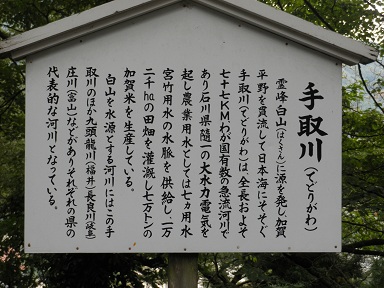 手取川（てどりがわ）
霊峰白山（はくさん）に源を発し加賀
平野を貫流して日本海にそそぐ
手取川（てどりがわ）は、全長およそ
七十七ＫＭ、わが国有数の急流河川で
あり石川県随一の大水力電気を
起し農業用水としては七ヶ用水
宮竹用水の水脈を供給し、一万
二千haの田畑を灌漑し七万トンの
加賀米を生産している。
白山を水源とする河川にはこの手
取川のほか九頭龍川（福井）長良川（岐阜）
庄川（富山）などがありそれぞれの県の
代表的な河川となっている。